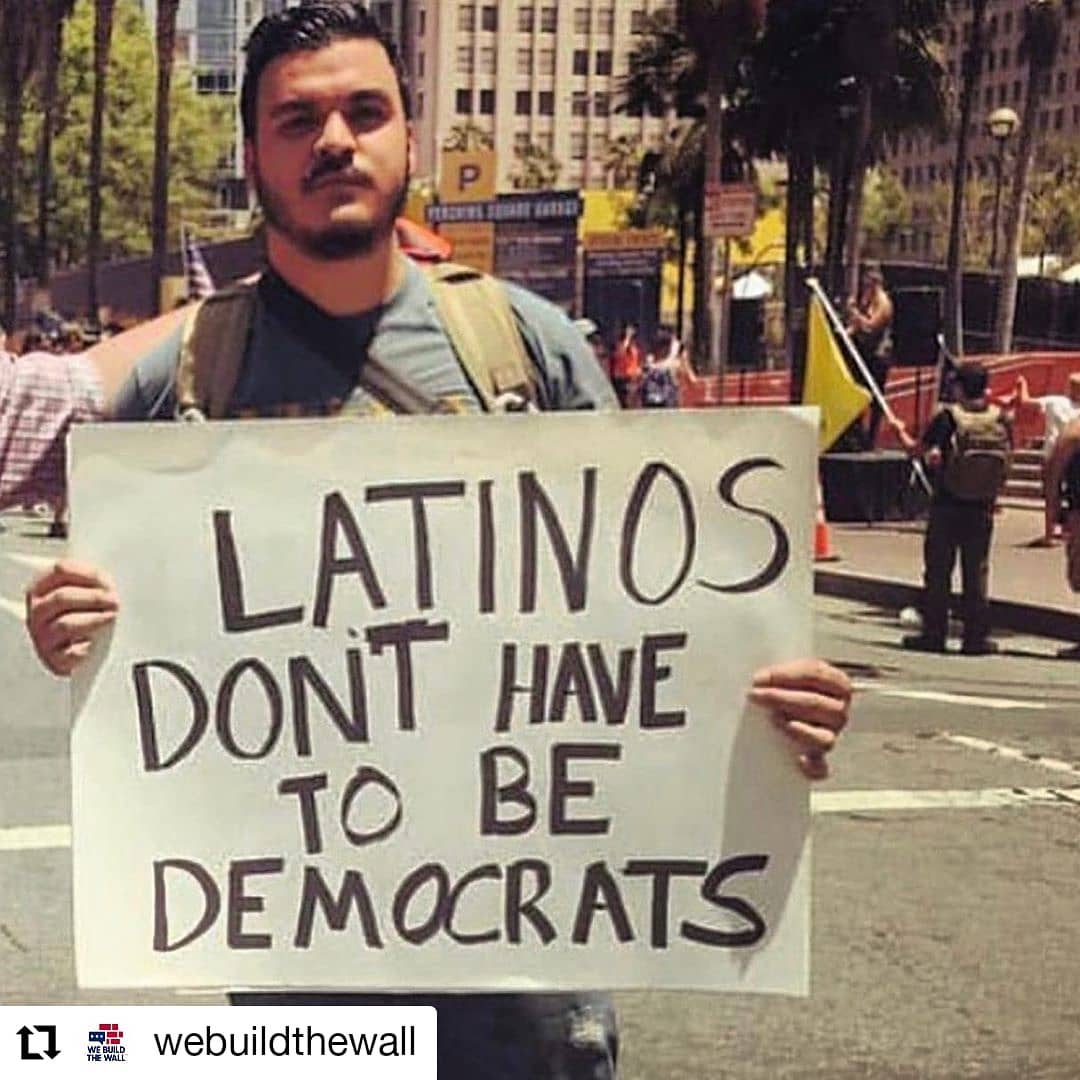 P
PERSHING SQUARE GARAGE
LATINOS
DON'T HAVE
TO BE
DEMOCRATS
WE BUILD
THE WALL
webuildthewall